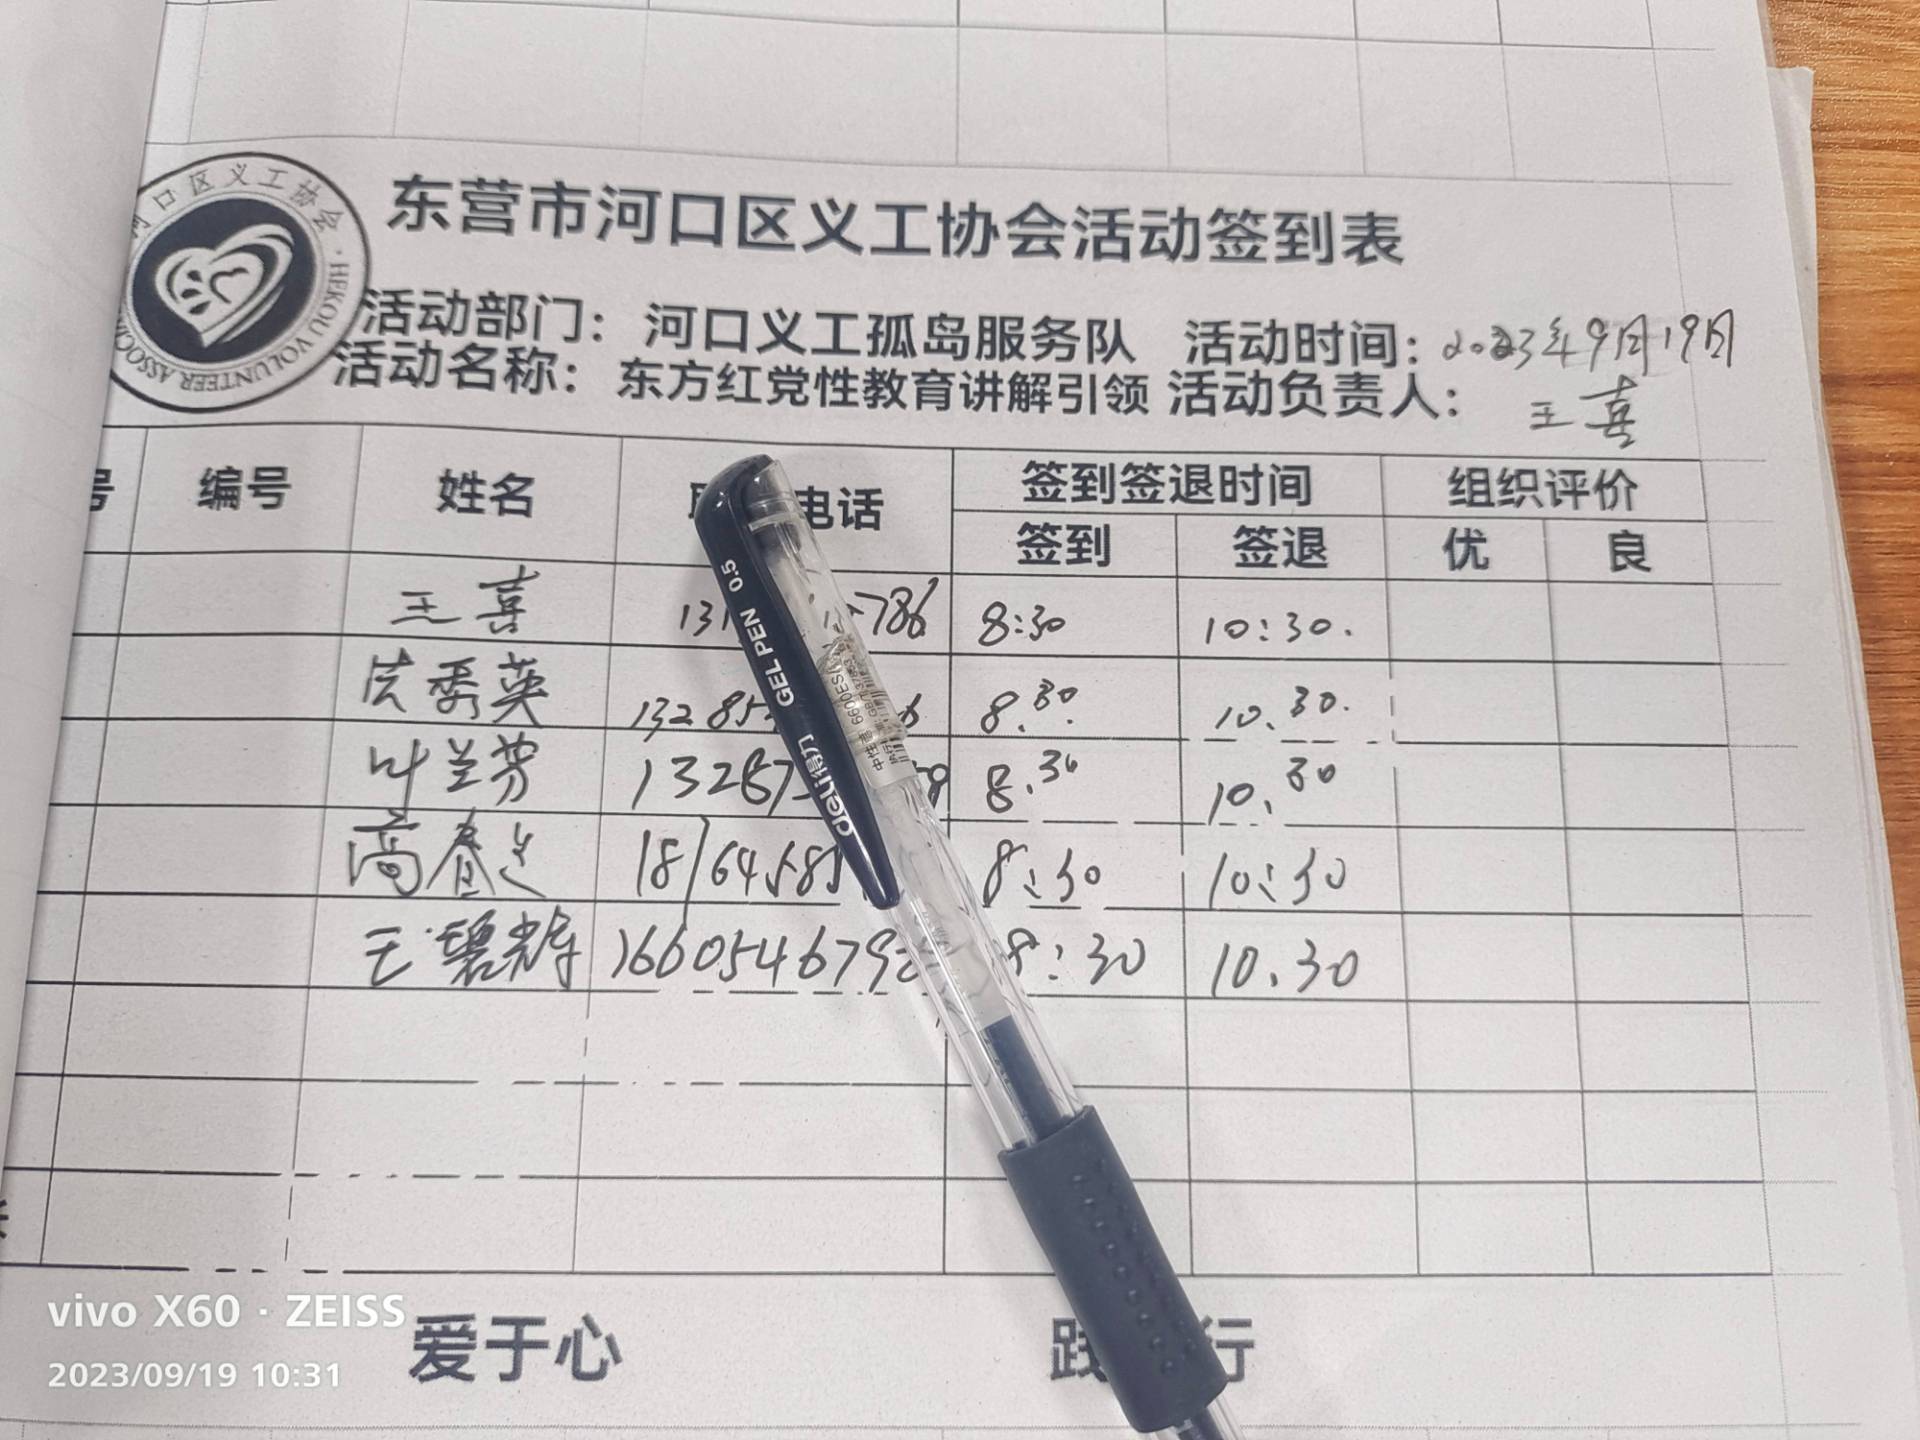 东营市河口区义工协会活动签到表
河口区义工协会·HEKOU VOLUNTEER
活动部门：河口义工孤岛服务队 活动时间：2023年9月19日
活动名称：东方红党性教育讲解引领 活动负责人：王喜
号 编号 姓名 电话 签到签退时间 组织评价
签到 签退 优 良
王喜 786 8:30 10:30.
秀英 8.30. 10.30.
叶兰芳 8.30 10.30
高春 8:30 10:30
王碧辉 8:30 10.30
GEL PEN 0.5
deli得力
爱于心 行
vivo X60 · ZEISS
2023/09/19 10:31